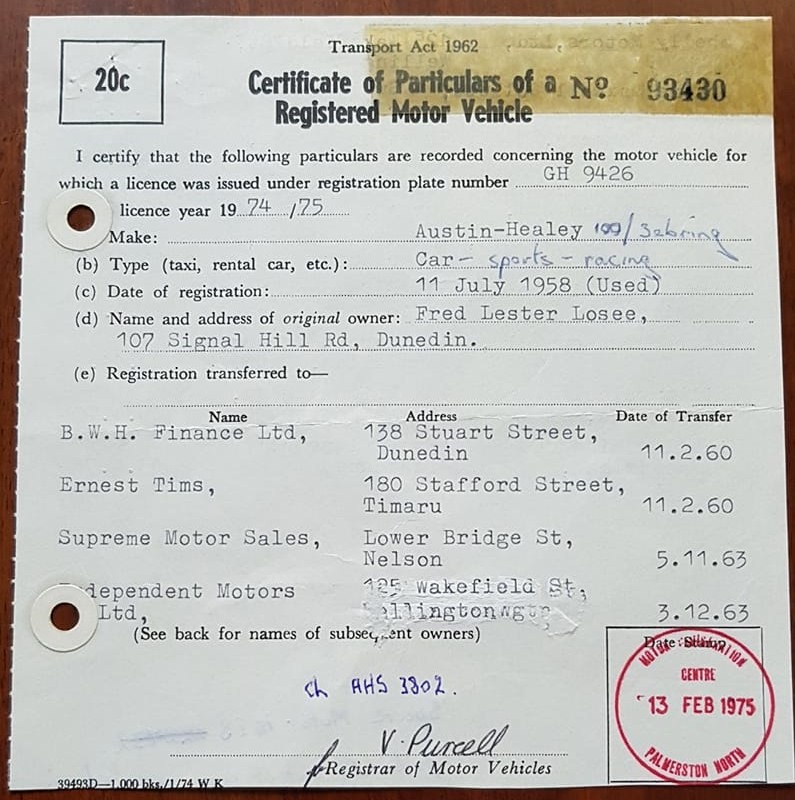 Transport Act 1962
20c
Certificate of Particulars of a
Registered Motor Vehicle
Nº 93430
I certify that the following particulars are recorded concerning the motor vehicle for
which a licence was issued under registration plate number GH 9426
licence year 1974/75
Make: Austin-Healey 100/Sebring
(b) Type (taxi, rental car, etc.): Car - sports - racing
(c) Date of registration: 11 July 1958 (Used)
(d) Name and address of original owner: Fred Lester Losee,
107 Signal Hill Rd, Dunedin.
(e) Registration transferred to—
Name Address Date of Transfer
B.W.H. Finance Ltd, 138 Stuart Street,
Dunedin 11.2.60
Ernest Tims, 180 Stafford Street,
Timaru 11.2.60
Supreme Motor Sales, Lower Bridge St,
Nelson 5.11.63
dependent Motors 125 Wakefield St,
Ltd, ellington 3.12.63
(See back for names of subsequent owners)
Date Stamp
MOTOR REGISTRATION
CENTRE
13 FEB 1975
PALMERSTON NORTH
Ch AHS 3802.
V. Purcell
Registrar of Motor Vehicles
39493D—1,000 bks./1/74 W K